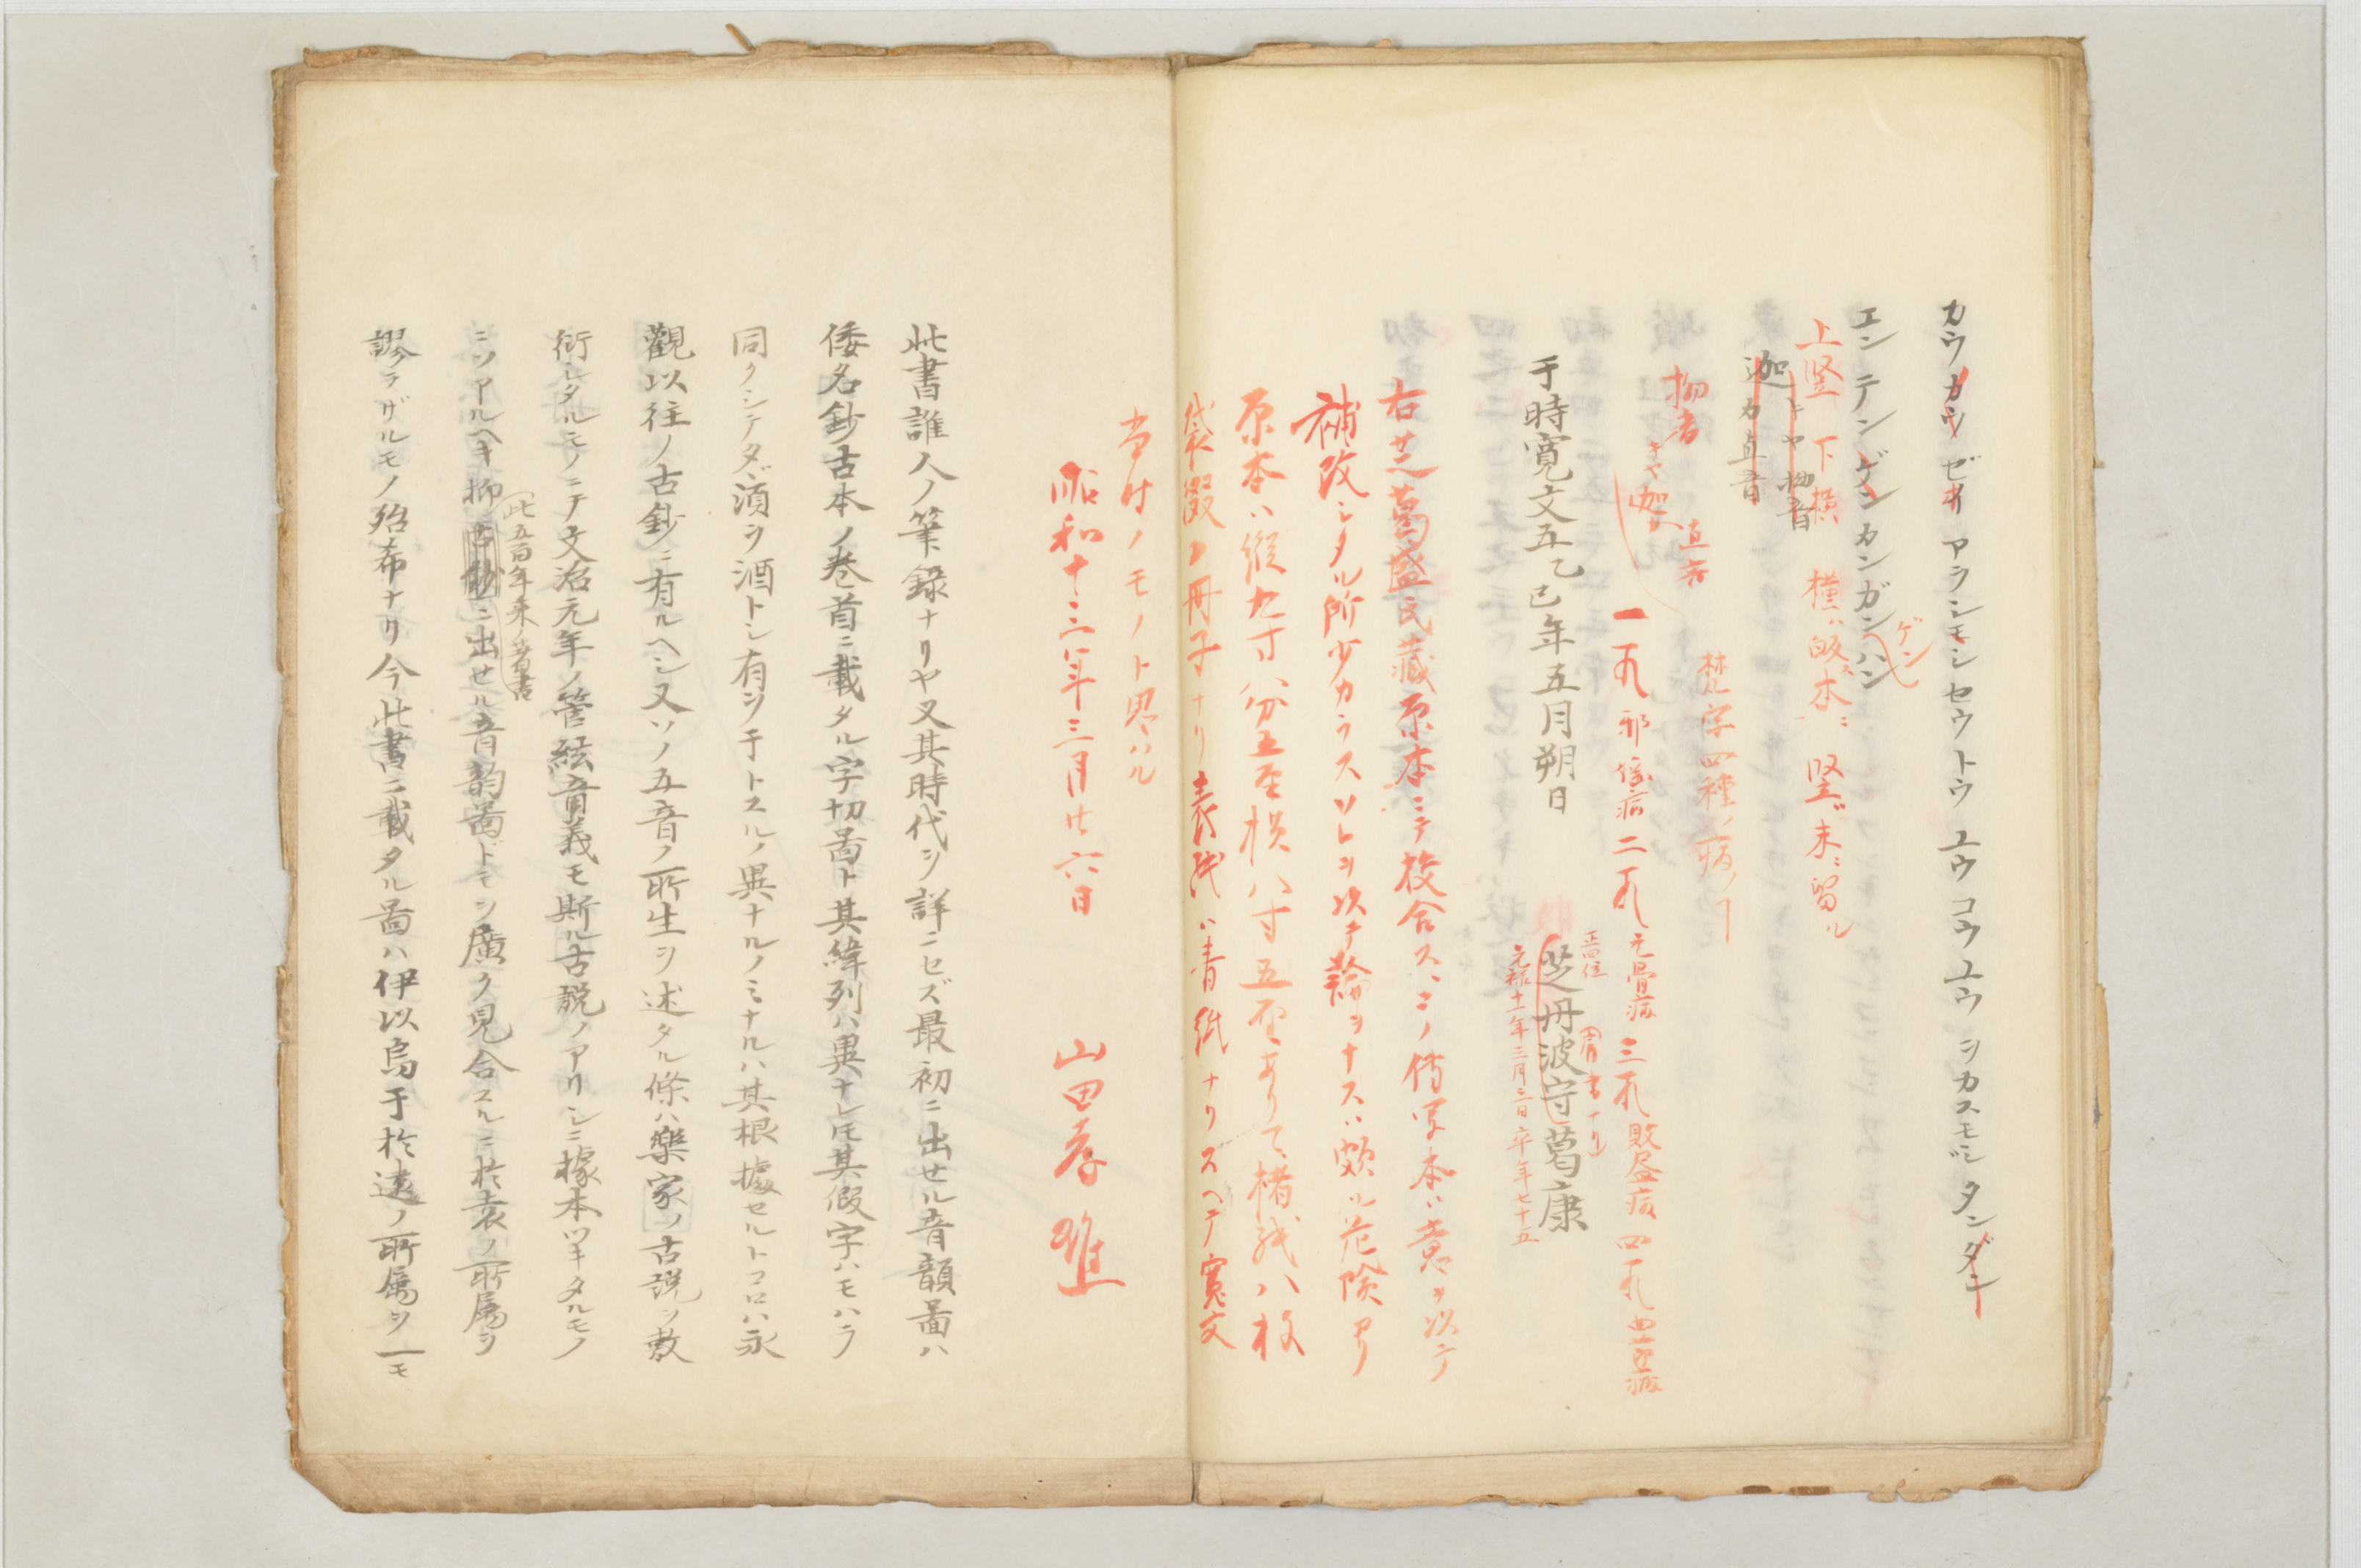 カウカウ ゼイ アラシモシセウトウ ユウコウユウ シカスモジ タンダン
エンテンゲンカンガンハン
ゲン
上竪 下横 横ハ 本ニ 竪ハ末ニ留ル
キヤ 拗音
迦 カ直音
拗音 キヤ 迦 直音
梵字四種ノ病ノ
一爪 邪 病 二爪 元骨病 三爪 病 四爪 病
于時寛文五乙巳年五月朔日
正四位 芝丹波守葛康
(肩書ナリ)
元禄十一年三月二日卒年七十五
右芝葛盛氏蔵原本ニテ校合スコノ傳写本ハ意ヲ以テ
補改シタル所少カラスソレヲ以テ論ヲナスハ頗ル危険アリ
原本ハ縦九寸八分五厘横八寸五厘ありて楮紙八枚
袋綴ノ冊子ナリ表紙ハ青紙ナリスヘテ寛文
当時ノモノト思ハル
昭和十三年三月廿六日 山田孝雄
此書誰人ノ筆録ナリヤ又其時代ヲ詳ニセズ最初ニ出セル音韻啚ハ
倭名鈔古本ノ巻首ニ載タル字切啚ト其緯列ハ異ナレ𪜈其假字ハモハラ
同クシテタヾ須ヲ酒トシ有ヲ于トスルノ異ナルノミナルハ其根據セルトコロハ永
觀以往ノ古鈔ニ有ルヘシ又ソノ五音ノ所生ヲ述タル條ハ樂家ノ古説ヲ敷
衍シタルモノニテ文治元年ノ管絃音義モ斯ル古説ノアリシニ據本ツキタルモノ
ニソアルヘキ抑古鈔ニ出セル音韵啚ドモヲ廣ク見合スルニ於袁ノ所属ヲ
(此五百年来ノ著書
謬ラザルモノ殆希ナリ今此書ニ載タル啚ハ伊以烏于於遠ノ所属ヲ一モ